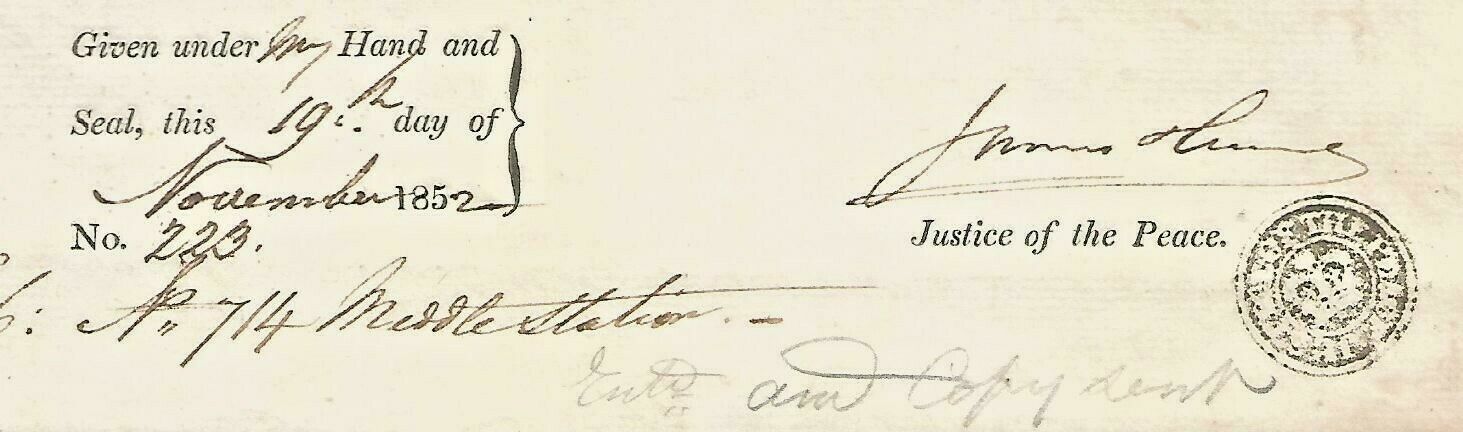 Given under my Hand and
Seal, this 19th day of
November 1852
No. 223.
James Hume
Justice of the Peace.
No 714 Middle Station. -
Entd and Copy sent